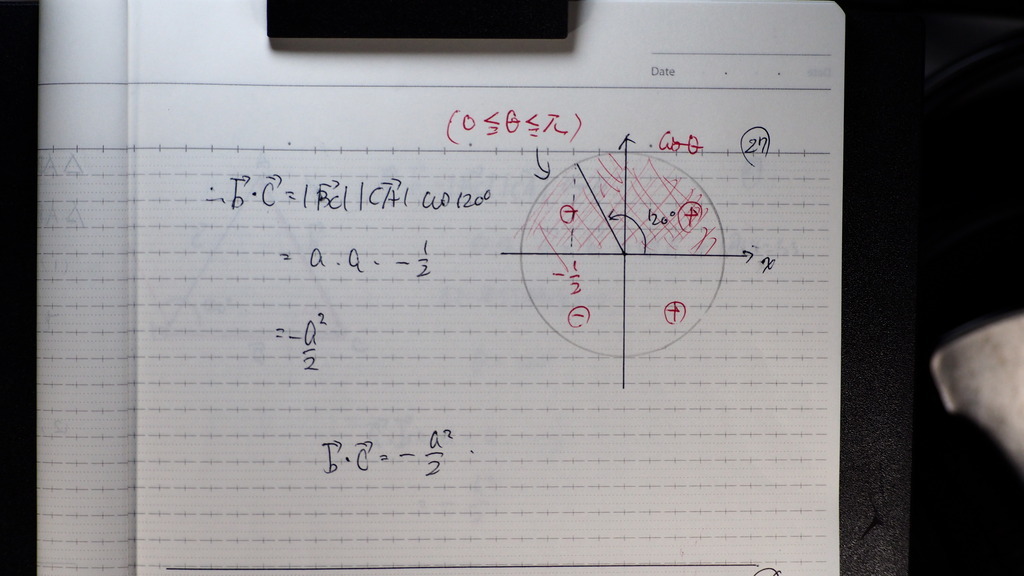 Date
(0 ≦ θ ≦ π)
cos θ
(27)
∴ b⃗・c⃗ = |BC⃗| |CA⃗| cos 120°
= a・a・-1/2
= -a²/2
b⃗・c⃗ = -a²/2
⊖
120°
⊕
x
-1/2
⊖
⊕